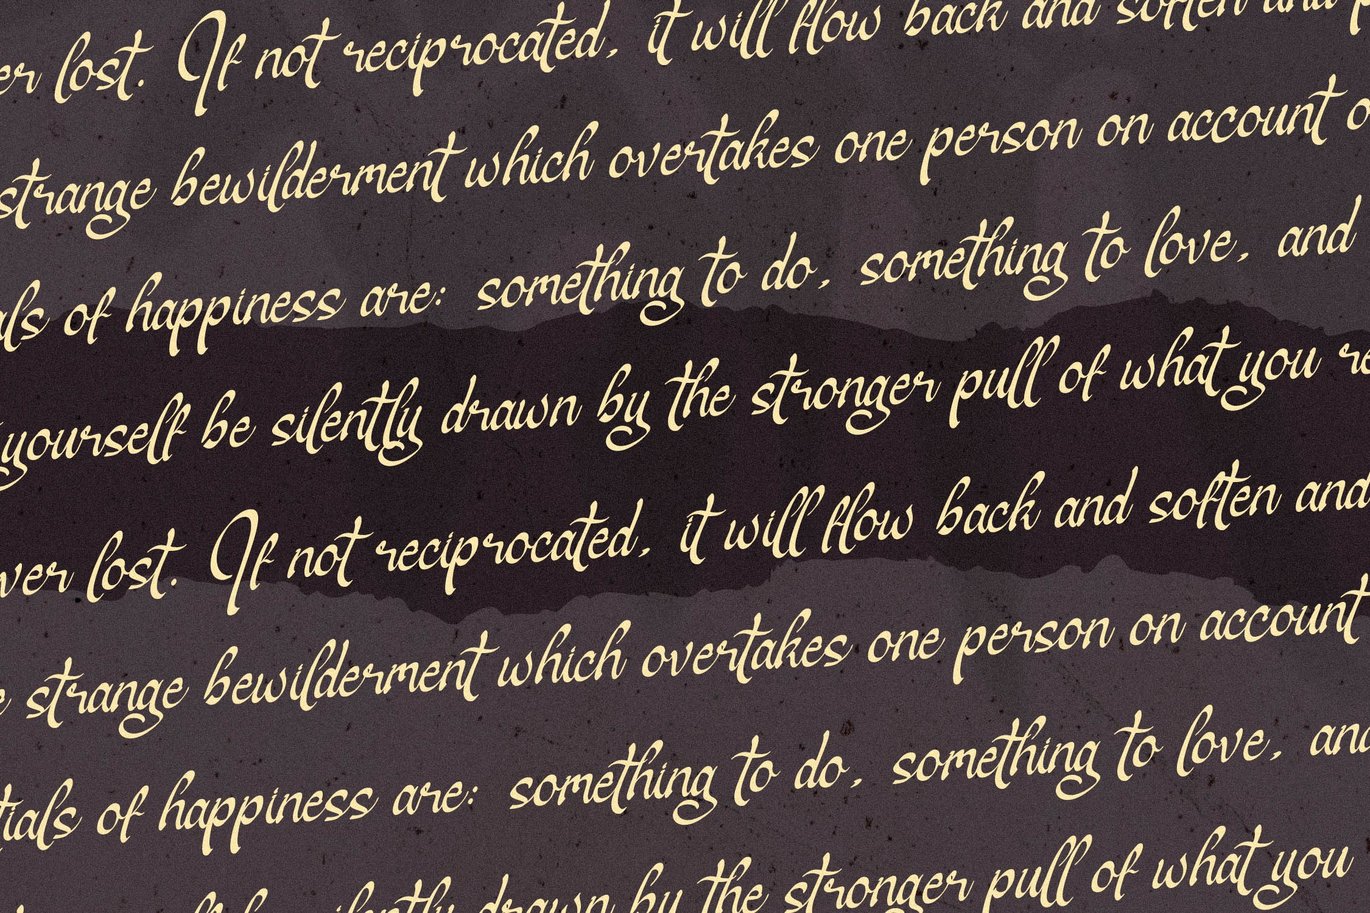 er lost. If not reciprocated, it will flow back and soften and p
strange bewilderment which overtakes one person on account o
als of happiness are: something to do, something to love, and
yourself be silently drawn by the stronger pull of what you re
ver lost. If not reciprocated, it will flow back and soften and
e strange bewilderment which overtakes one person on account
tials of happiness are: something to do, something to love, and
yourself be silently drawn by the stronger pull of what you